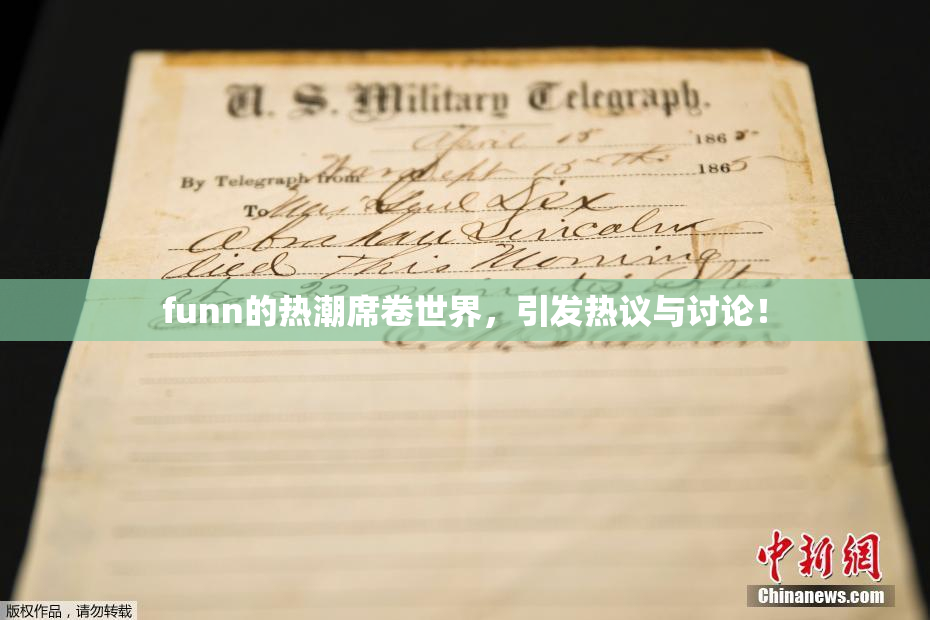 U. S. Military Telegraph.
April 15 1865
By Telegraph from War Dept 15th 1865
To Maj Genl Dix
Abraham Lincoln
died This Morning
at 22 minutes after
funn的热潮席卷世界，引发热议与讨论！
中新网
Chinanews.com
版权作品，请勿转载